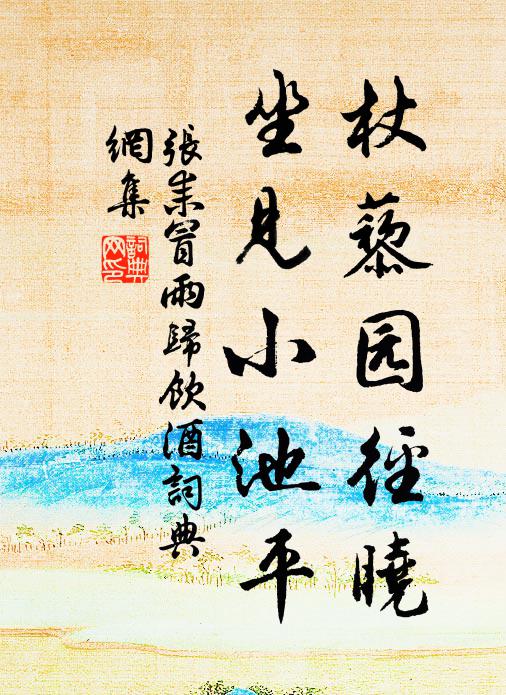 杖藜园徑曉
坐見小池平
張耒冒雨歸飲酒詞典
網集
詞典
网印